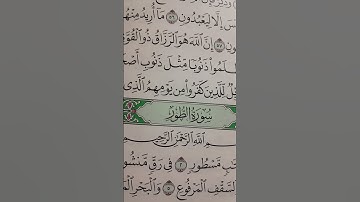 إِلَّا لِيَعْبُدُونِ ٥٦ مَآ أُرِيدُ مِنْهُم
٥٧ إِنَّ ٱللَّهَ هُوَ ٱلرَّزَّاقُ ذُو ٱلْقُوَّةِ
ظَلَمُوا۟ ذَنُوبًا مِّثْلَ ذَنُوبِ
لِّلَّذِينَ كَفَرُوا۟ مِن يَوْمِهِمُ ٱلَّذِى
سُورَةُ ٱلطُّورِ
ٱللَّهِ ٱلرَّحْمَٰنِ ٱلرَّحِيمِ
مَّسْطُورٍ ٢ فِى رَقٍّ
ٱلسَّقْفِ ٱلْمَرْفُوعِ ٥ وَٱلْبَحْرِ